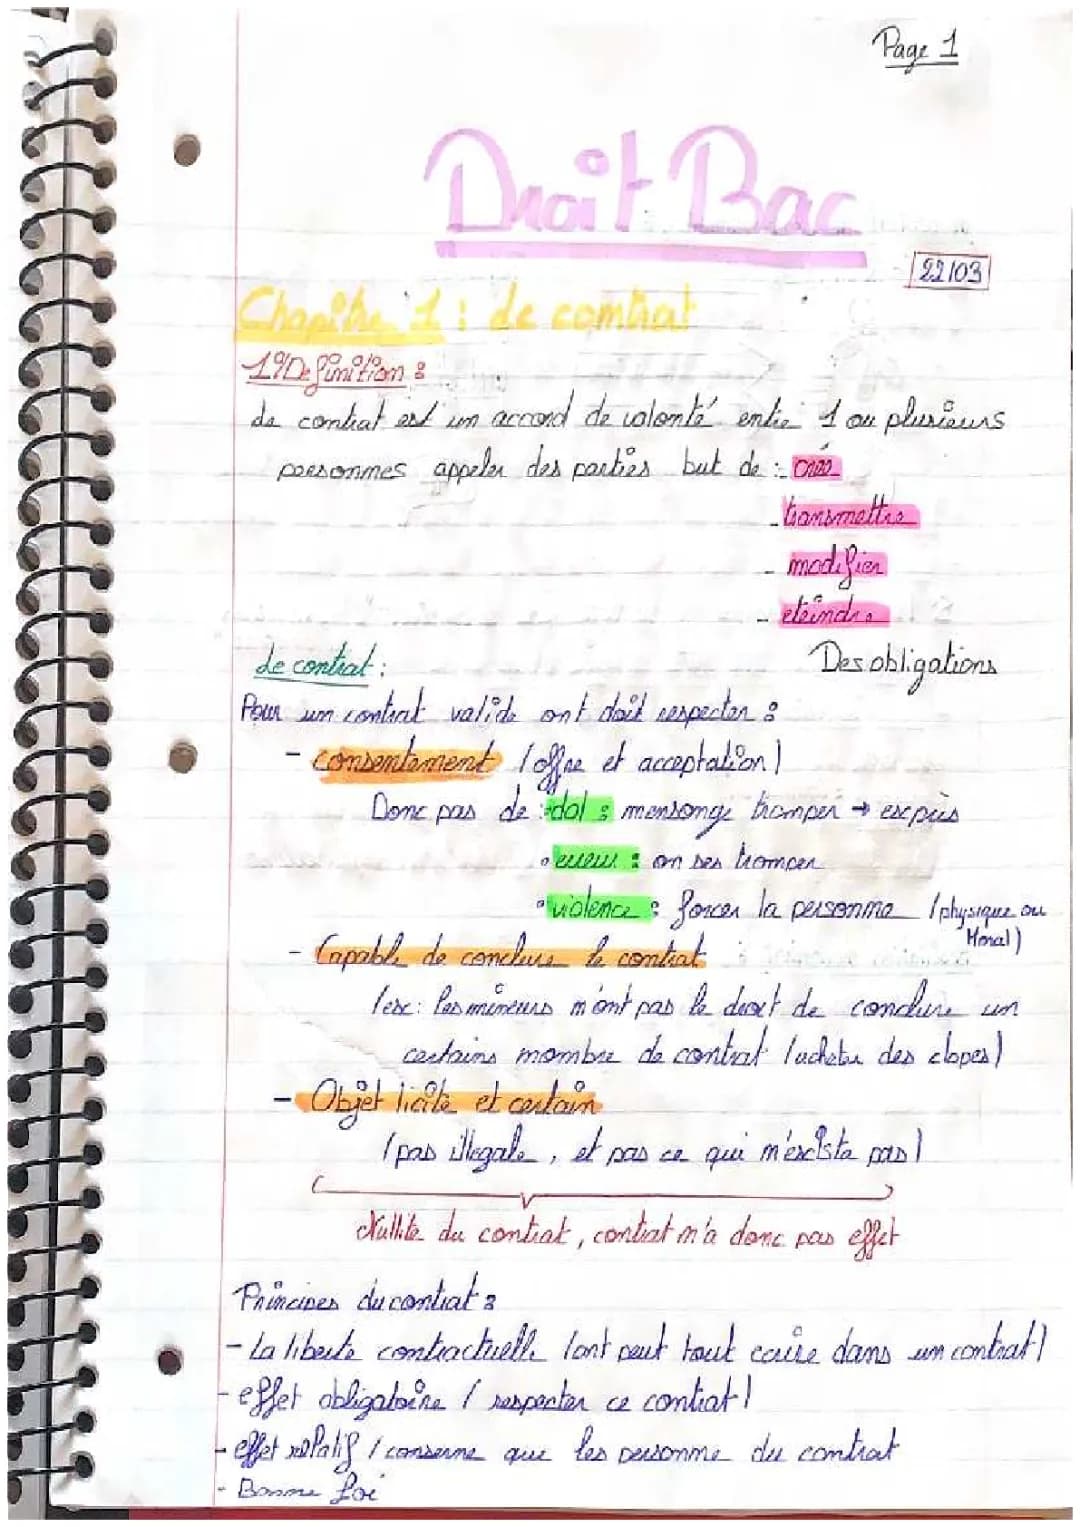 Page 1
Droit Bac
22/03
Chapitre 1 : Le contrat
1°/ Definition :
Le contrat est un accord de volonté entre 1 ou plusieurs
personnes appeler des parties but de : - créé
- transmettre
- modifier
- eteindre
Des obligations
Le contrat :
Pour un contrat valide ont doit respecter :
- consentement (offre et acceptation)
Donc pas de : • dol : mensonge tromper → exprès
• erreur : on ses tromper
• violence : forcer la personne (physique ou
Moral)
- Capable de conclure le contrat
(ex : les mineurs n'ont pas le droit de conclure un
certains nombre de contrat (acheter des clopes)
- Objet licite et certain
(pas illegale, et pas ce qui n'existe pas)
Nullité du contrat, contrat n'a donc pas effet
Principes du contrat :
- La liberte contractuelle (ont peut tout écrire dans un contrat)
- effet obligatoire (respecter ce contrat)
- effet relatif (conserne que les personne du contrat
- Bonne foi